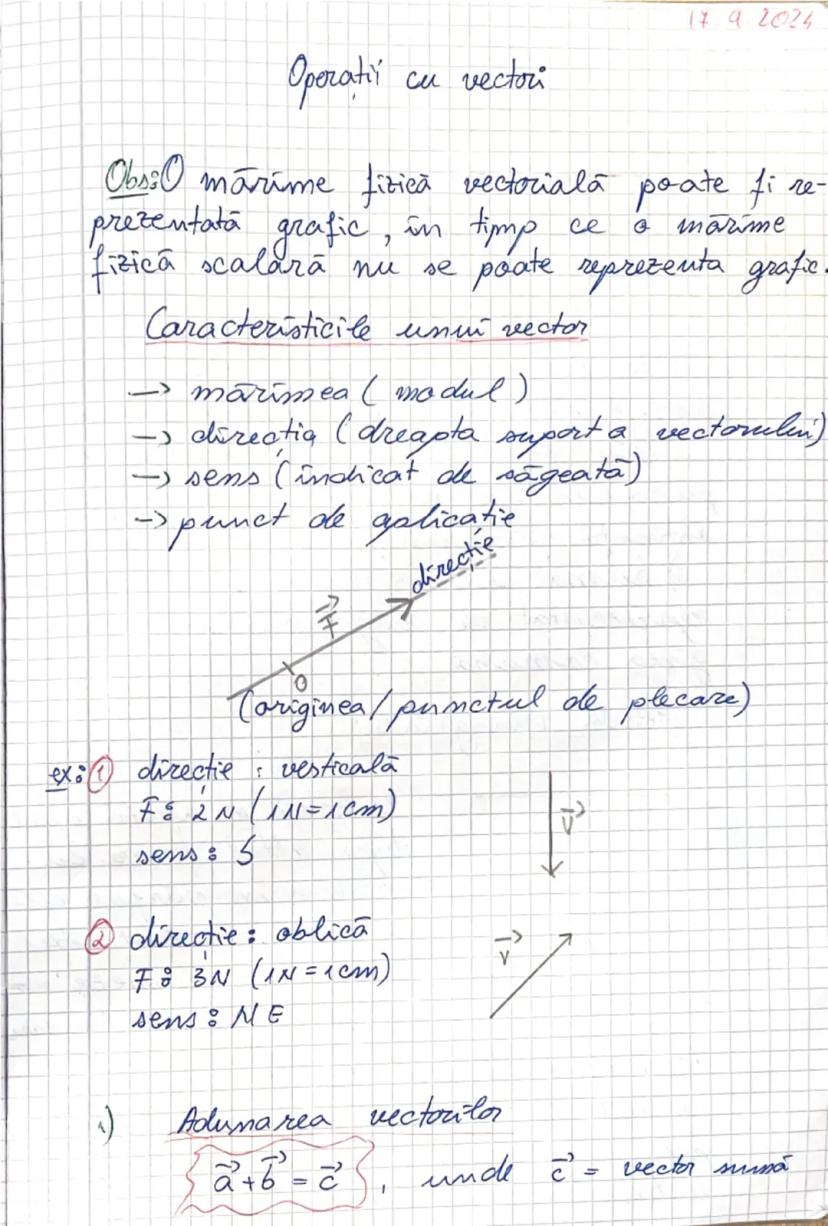 17 9 2024
Operații cu vectori
Obs: O mărime fizică vectorială poate fi re-
prezentată grafic, în timp ce o mărime
fizică scalară nu se poate reprezenta grafic.
Caracteristicile unui vector
-> mărimea (modul)
-> direcția (dreapta suport a vectorului)
-> sens (indicat de săgeată)
-> punct de aplicație
direcție
F⃗
O
(originea/punctul de plecare)
ex: ① direcție : verticală
F: 2N (1N=1cm)
sens: S
V⃗
② direcție: oblică
F: 3N (1N=1cm)
sens: NE
V⃗
1) Adunarea vectorilor
a⃗ + b⃗ = c⃗ , unde c⃗ = vector sumă